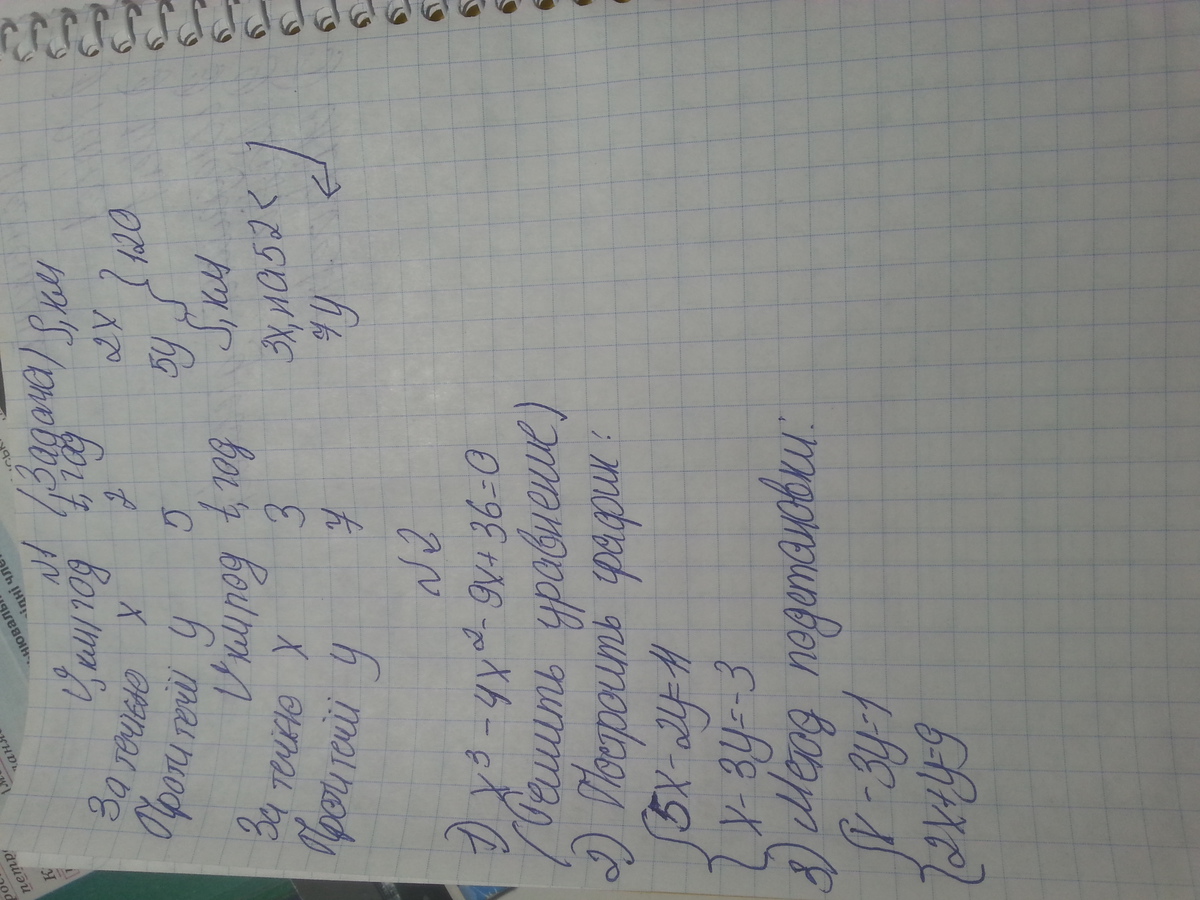 №1 (Задача)
V, км/год t, год S, км
За течією x 2 2x } 120
Проти течії y 5 5y
V км/год t, год S, км
За течією x 3 3x, на 52 <
Проти течії y 7 7y
№2
1) x³ - 4x² - 9x + 36 = 0
(Решить уравнение)
2) Построить график:
{ 5x - 2y = 11
x - 3y = -3
3) Метод подстановки:
{ x - 3y = 1
2x + y = 9